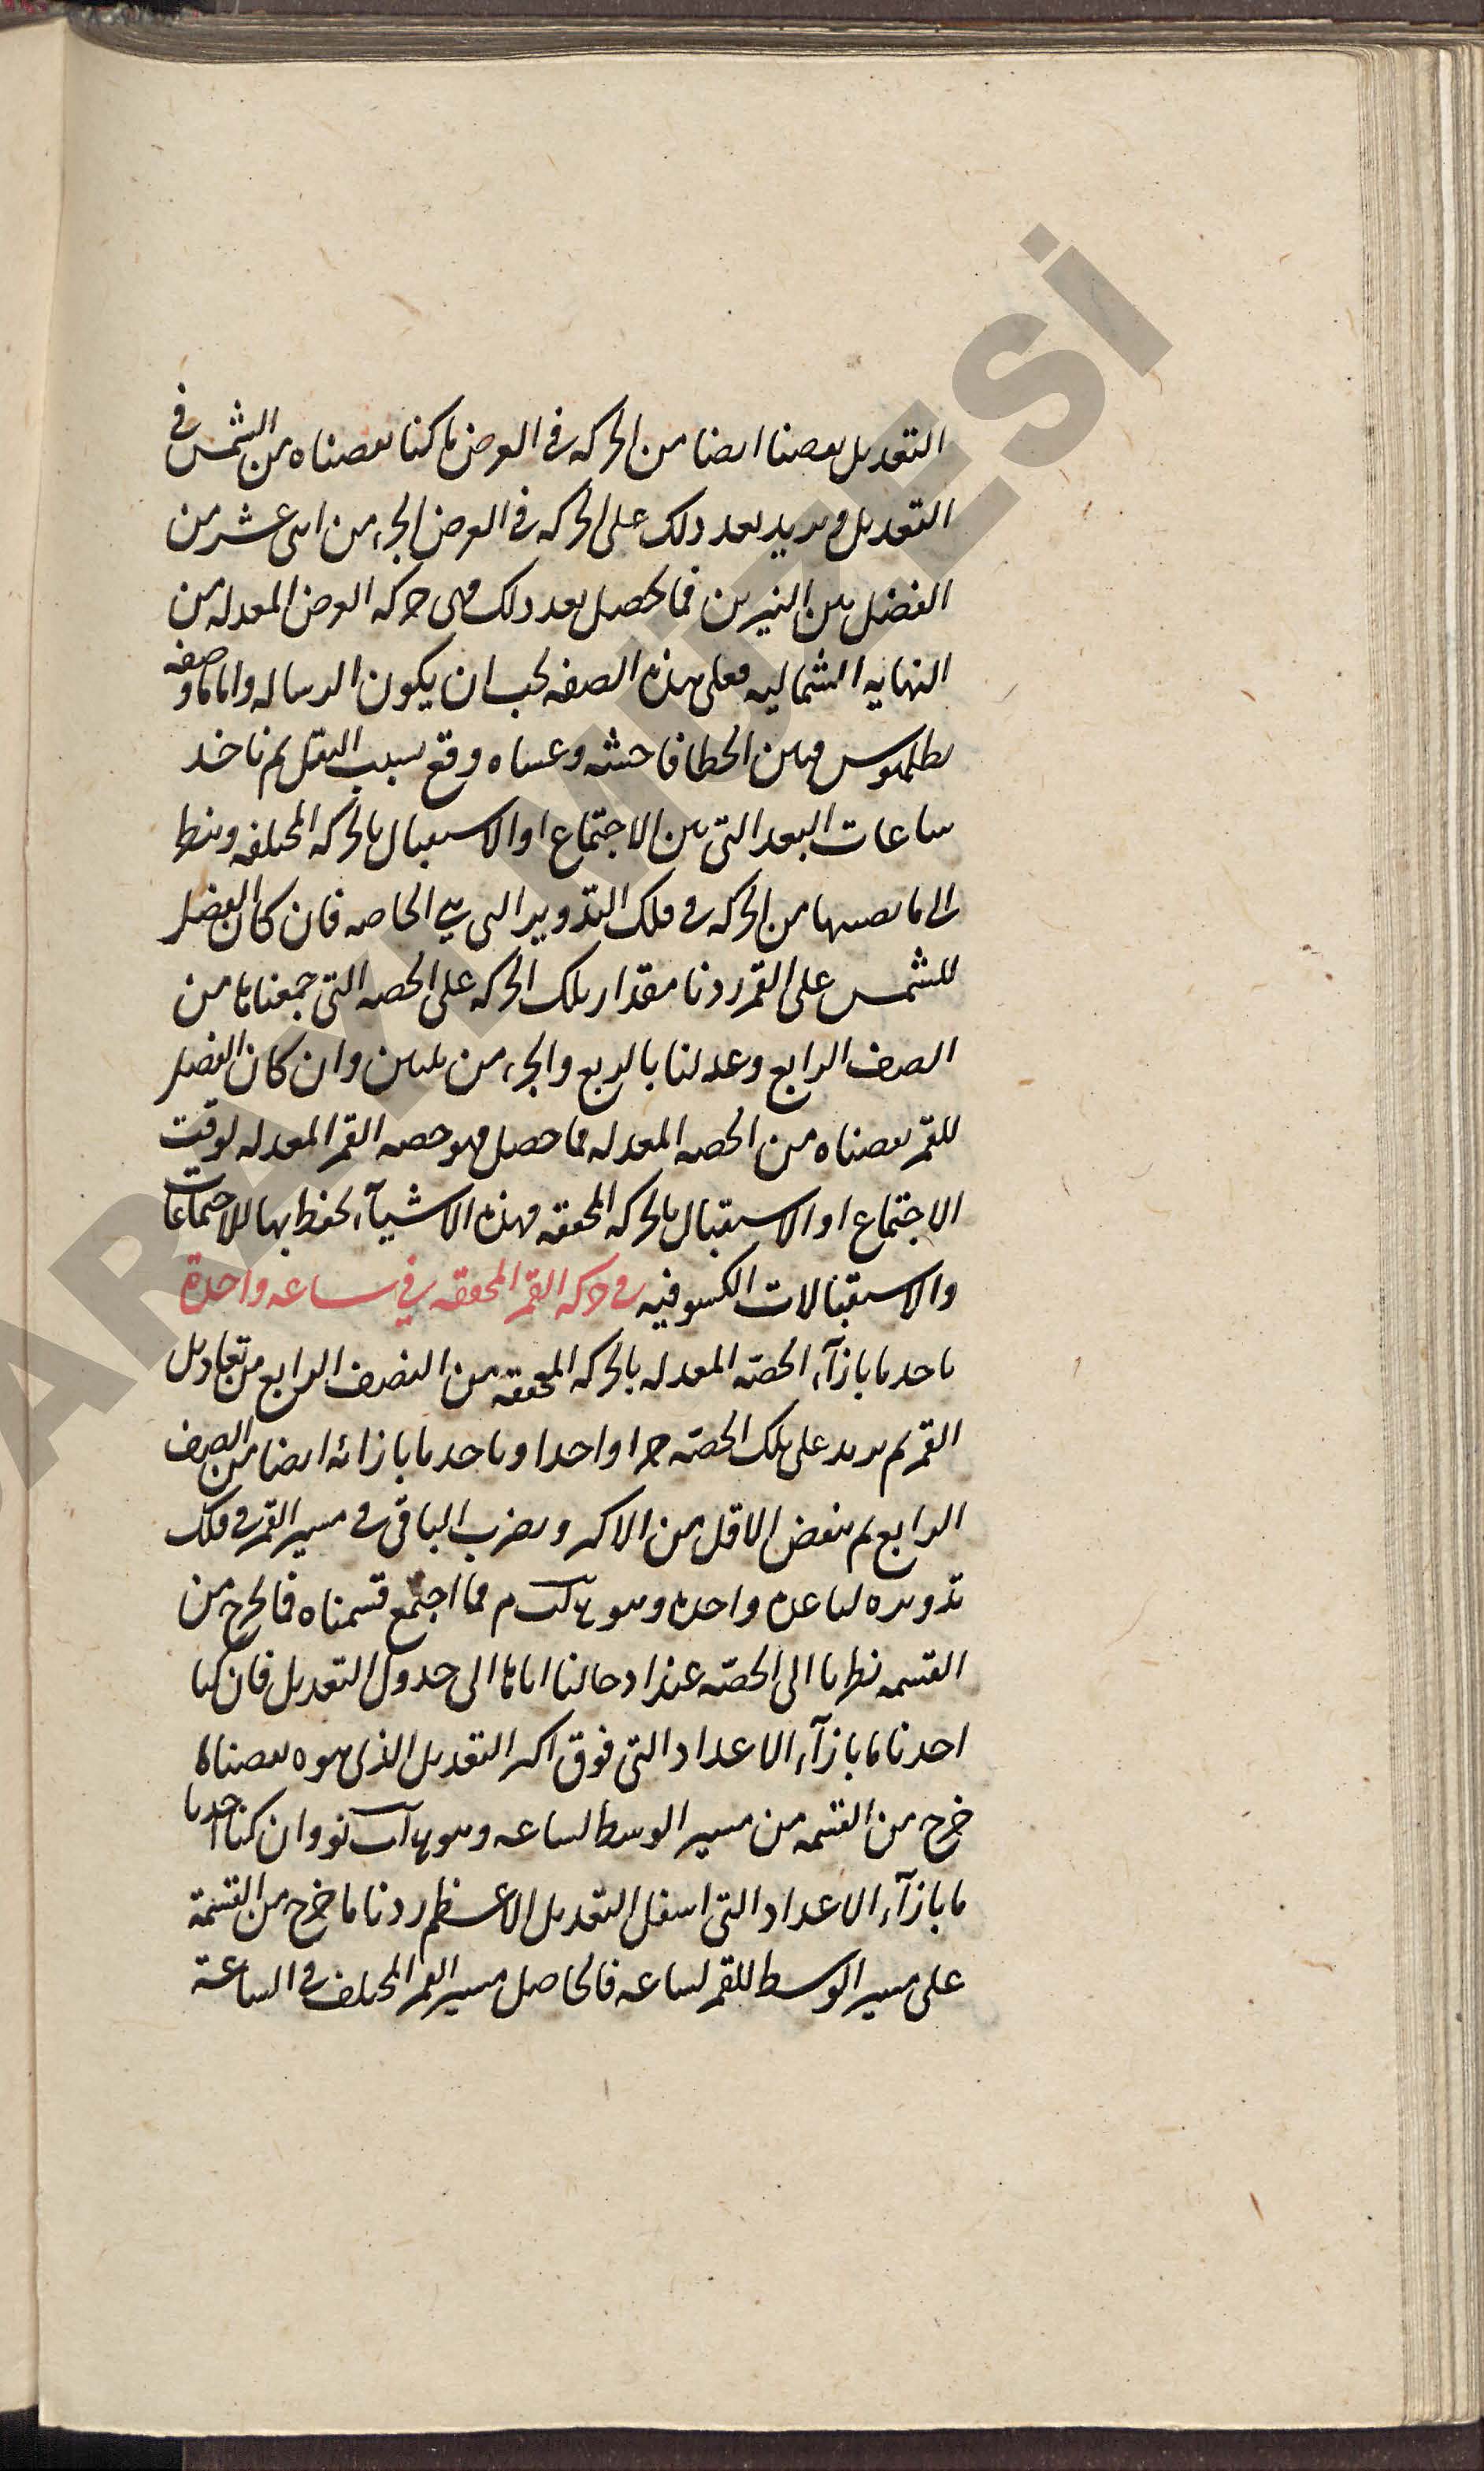 التعديل نقصنا ايضا من الحركه في العرض ما كنا نقصناه من الشمس في
التعديل ونزيد بعد ذلك على الحركه في العرض الجزء من اثنى عشر من
الفضل بين النيرين فما يحصل بعد ذلك فهى حركه العرض المعدله من
النهايه الشماليه فعلى هذه الصفه يجب ان يكون الرساله واما ما وصفه
بطلميوس فبين الخطا فاحشه وعساه وقع بسبب النقل ثم ناخذ
ساعات البعد التى بين الاجتماع او الاستقبال بالحركه المختلفه وننظر
الى ما يصيبها من الحركه في فلك التدوير التى هي الخاصه فان كان الفضل
للشمس على القمر زدنا مقدار تلك الحركه على الحصه التى جمعناها من
الصف الرابع وعدلنا بالربع والجزء من ثلثين وان كان الفضل
للقمر نقصناه من الحصه المعدله فما حصل فهو حصه القمر المعدله لوقت
الاجتماع او الاستقبال بالحركه المحققه فهذه الاشيآء يحفظ بها للاجتماعات
والاستقبالات الكسوفيه في حركه القمر المحققه في ساعه واحدة
ناخذ ما بازآء الحصّه المعدله بالحركه المحققه من النصف الرابع من تعاديل
القمر ثم نزيد على تلك الحصّه جزا واحدا وناخذ ما بازائه ايضا من الصف
الرابع ثم ننقص الاقل من الاكثر ونضرب الباقى في مسير القمر في فلك
تدويره لساعة واحدة وهو لب م فما اجتمع قسمناه فما يخرج من
القسمه نظرنا الى الحصّه عند ادخالنا اياها الى جدول التعديل فان كنا
اخذنا ما بازآء الاعداد التى فوق اكثر التعديل الذى هو ه نقصنا ما
خرج من القسمه من مسير الوسط لساعه وهو لب نو وان كنا اخذنا
ما بازآء الاعداد التى اسفل التعديل الاعظم زدنا ما خرج من القسمة
على مسير الوسط للقمر لساعه فالحاصل مسير القمر المختلف في الساعة